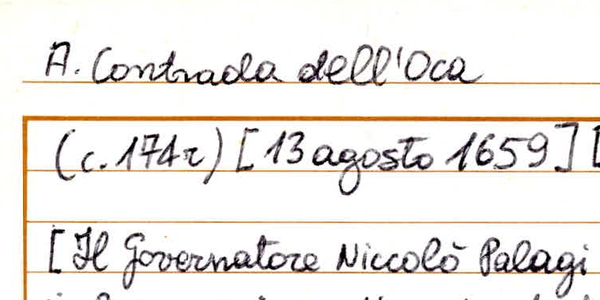 A. Contrada dell'Oca
(c. 174r) [13 agosto 1659] [
[Il Governatore Niccolò Palagi